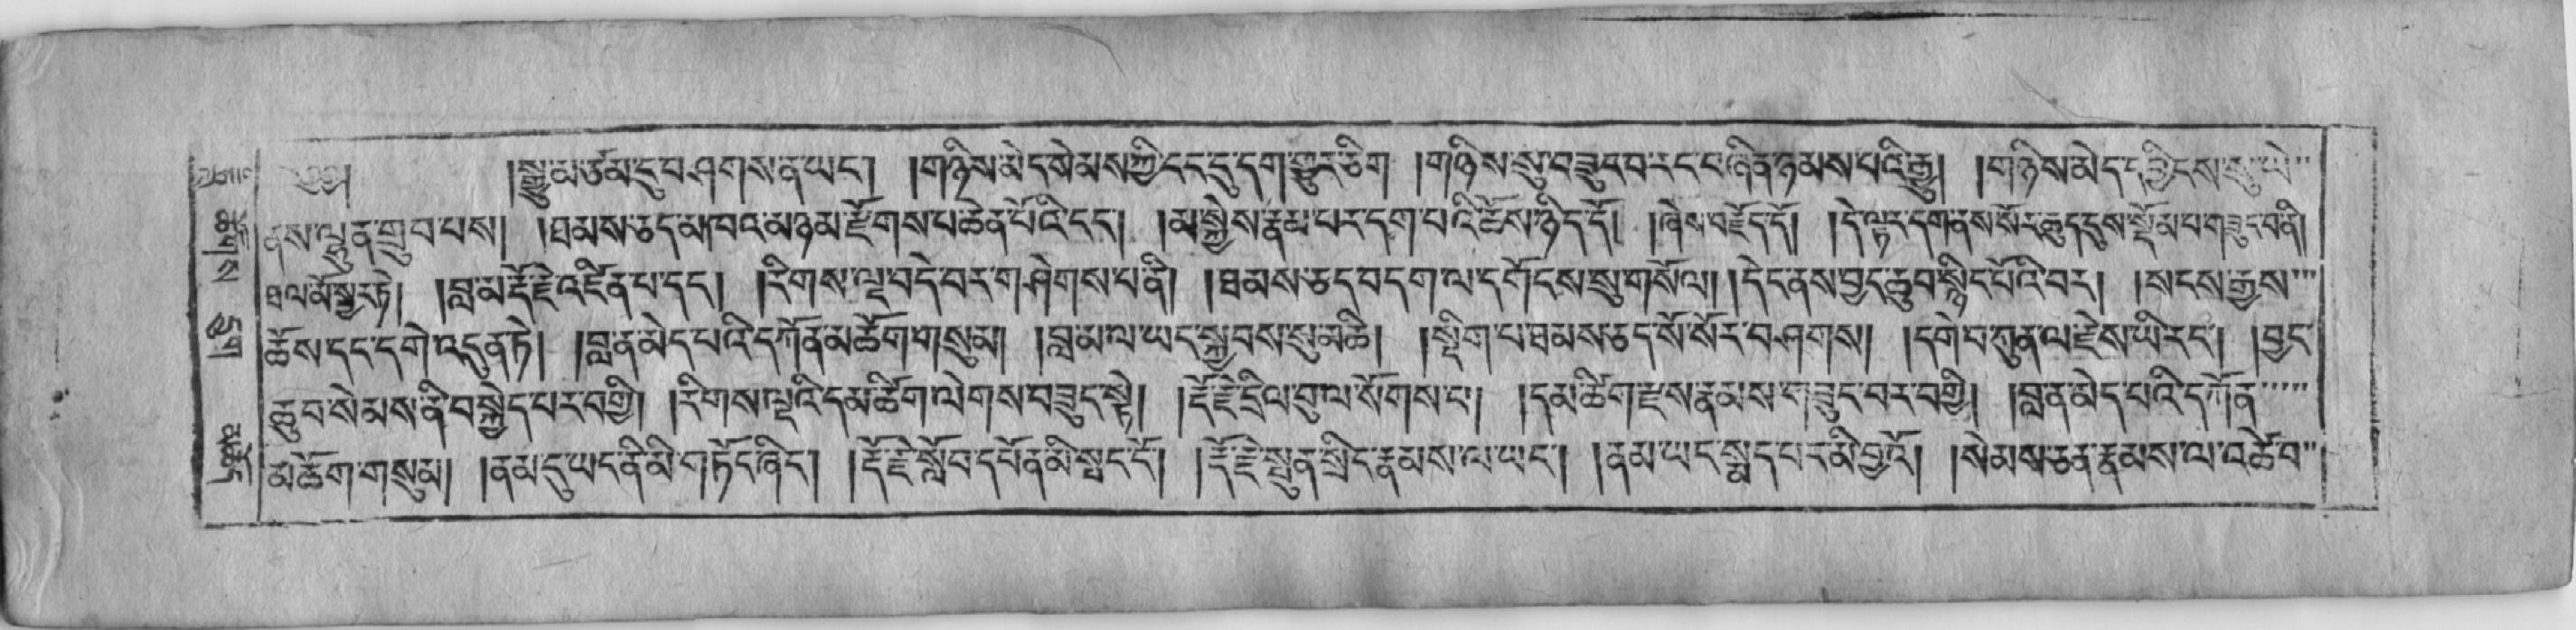 །སྒྱུ་མ་ཙམ་དུ་བཤགས་ན་ཡང་། །གཉིས་མེད་སེམས་ཀྱི་དང་དུ་དག་གྱུར་ཅིག །གཉིས་སུ་བཟུང་བ་རང་བཞིན་ཉམས་པའི་རྒྱུ། །གཉིས་མེད་དབྱིངས་སུ་ཡེ་
ནས་ལྷུན་གྲུབ་པས། །ཐམས་ཅད་མཁའ་མཉམ་རྫོགས་པ་ཆེན་པོའི་དང་། །མ་སྐྱེས་རྣམ་པར་དག་པའི་ཆོས་ཉིད་དོ། །ཞེས་བརྗོད་དོ། །དེ་ལྟར་དགནས་སོར་ཆུད་དུས་སྡོམ་པ་གཟུང་བ་ནི།
ཐལ་མོ་སྦྱར་ཏེ། །བླ་མ་རྡོ་རྗེ་འཛིན་པ་དང་། །རིགས་ལྔ་བདེ་བར་གཤེགས་པ་ནི། །ཐམས་ཅད་བདག་ལ་དགོངས་སུ་གསོལ། །དེང་ནས་བྱང་ཆུབ་སྙིང་པོའི་བར། །སངས་རྒྱས་
ཆོས་དང་དགེ་འདུན་ཏེ། །བླ་ན་མེད་པའི་དཀོན་མཆོག་གསུམ། །བླ་མ་ལ་ཡང་སྐྱབས་སུ་མཆི། །སྡིག་པ་ཐམས་ཅད་སོ་སོར་བཤགས། །དགེ་བ་ཀུན་ལ་རྗེས་ཡི་རང་། །བྱང་
ཆུབ་སེམས་ནི་བསྐྱེད་པར་བགྱི། །རིགས་ལྔའི་དམ་ཚིག་ལེགས་བཟུང་སྟེ། །རྡོ་རྗེ་དྲིལ་བུ་ལ་སོགས་པ། །དམ་ཚིག་རྫས་རྣམས་གཟུང་བར་བགྱི། །བླ་ན་མེད་པའི་དཀོན་
མཆོག་གསུམ། །ནམ་དུ་ཡང་ནི་མི་གཏོང་ཞིང་། །རྡོ་རྗེ་སློབ་དཔོན་མི་སྤང་ངོ་། །རྡོ་རྗེ་སྤུན་སྲིང་རྣམས་ལ་ཡང་། །ནམ་ཡང་སྨད་པར་མི་བྱའོ། །སེམས་ཅན་རྣམས་ལ་འཚེ་བ་